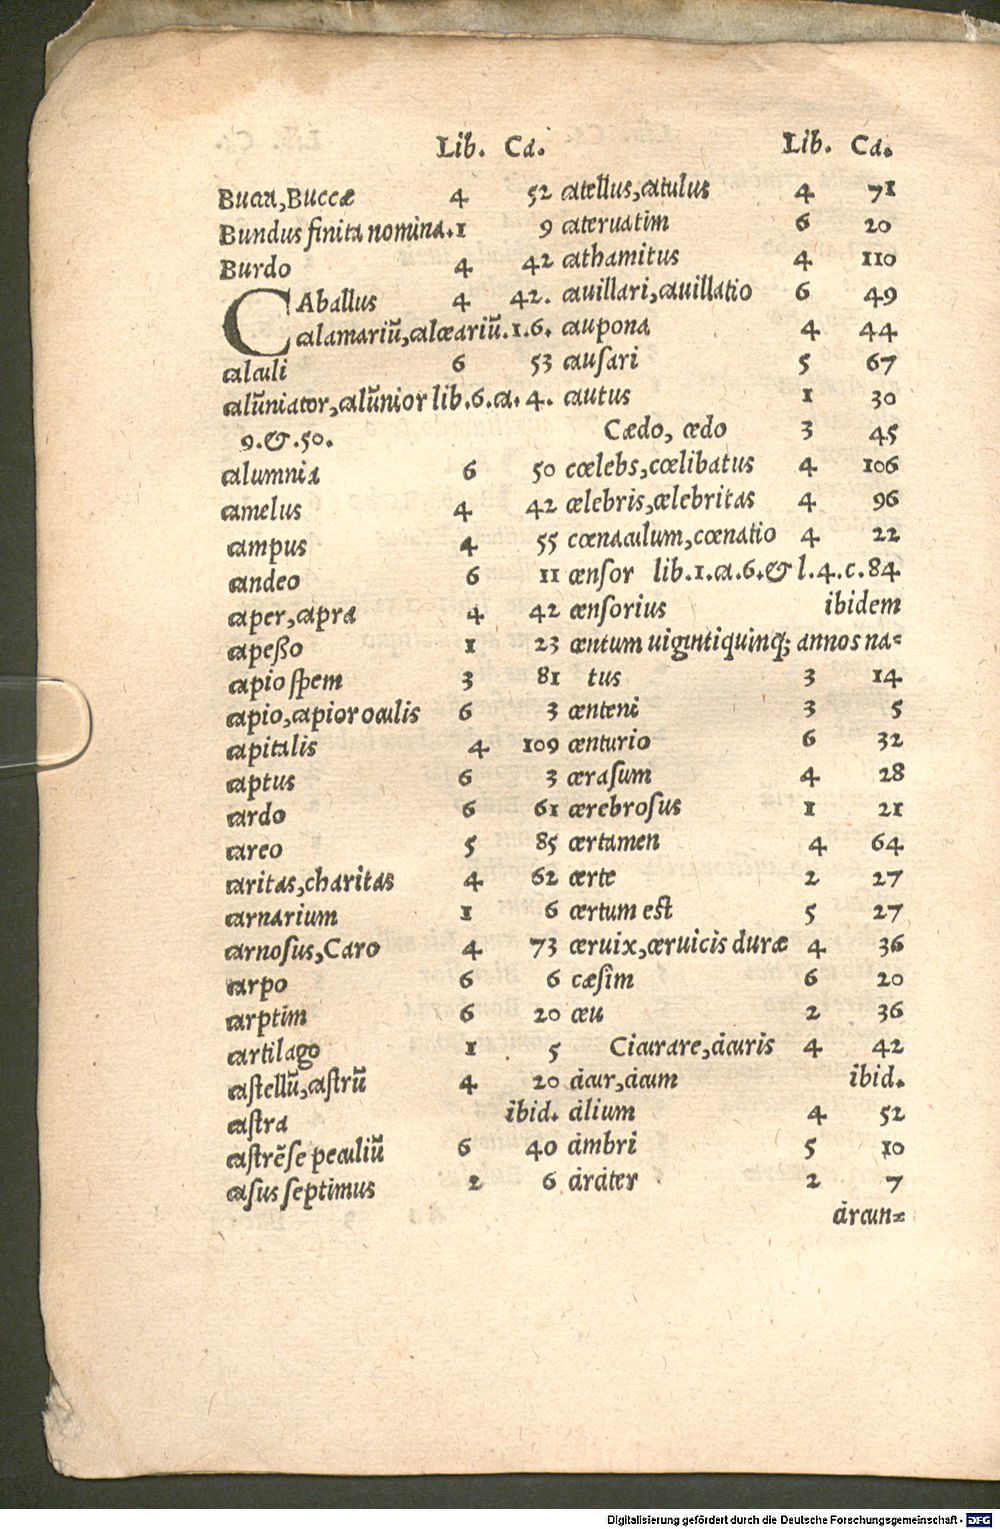 Lib. Ca.
Bucca, Buccæ 4 52
Bundus finita nomina. 1 9
Burdo 4 42
CAballus 4 42.
calamariũ, calceariũ. 1. 6.
calculi 6 53
calũniator, calũnior lib. 6. ca. 4.
9. &. 50.
calumnia 6 50
camelus 4 42
campus 4 55
candeo 6 11
caper, capra 4 42
capeßo 1 23
capio spem 3 81
capio, capior oculis 6 3
capitalis 4 109
captus 6 3
cardo 6 61
careo 5 85
caritas, charitas 4 62
carnarium 1 6
carnosus, Caro 4 73
carpo 6 6
carptim 6 20
cartilago 1 5
castellũ, castrũ 4 20
castra ibid.
castrẽse peculiũ 6 40
casus septimus 2 6
Lib. Ca.
catellus, catulus 4 71
cateruatim 6 20
cathamitus 4 110
cauillari, cauillatio 6 49
caupona 4 44
causari 5 67
cautus 1 30
Cædo, cedo 3 45
cœlebs, cœlibatus 4 106
celebris, celebritas 4 96
cœnaculum, cœnatio 4 22
censor lib. 1. ca. 6. & l. 4. c. 84
censorius ibidem
centum uigintiquinq; annos na-
tus 3 14
centeni 3 5
centurio 6 32
cerasum 4 28
cerebrosus 1 21
certamen 4 64
certe 2 27
certum est 5 27
ceruix, ceruicis duræ 4 36
cæsim 6 20
ceu 2 36
Cicurare, cicuris 4 42
cicur, cicum ibid.
cilium 4 52
cimbri 5 10
circiter 2 7
circun-
Digitalisierung gefördert durch die Deutsche Forschungsgemeinschaft - DFG